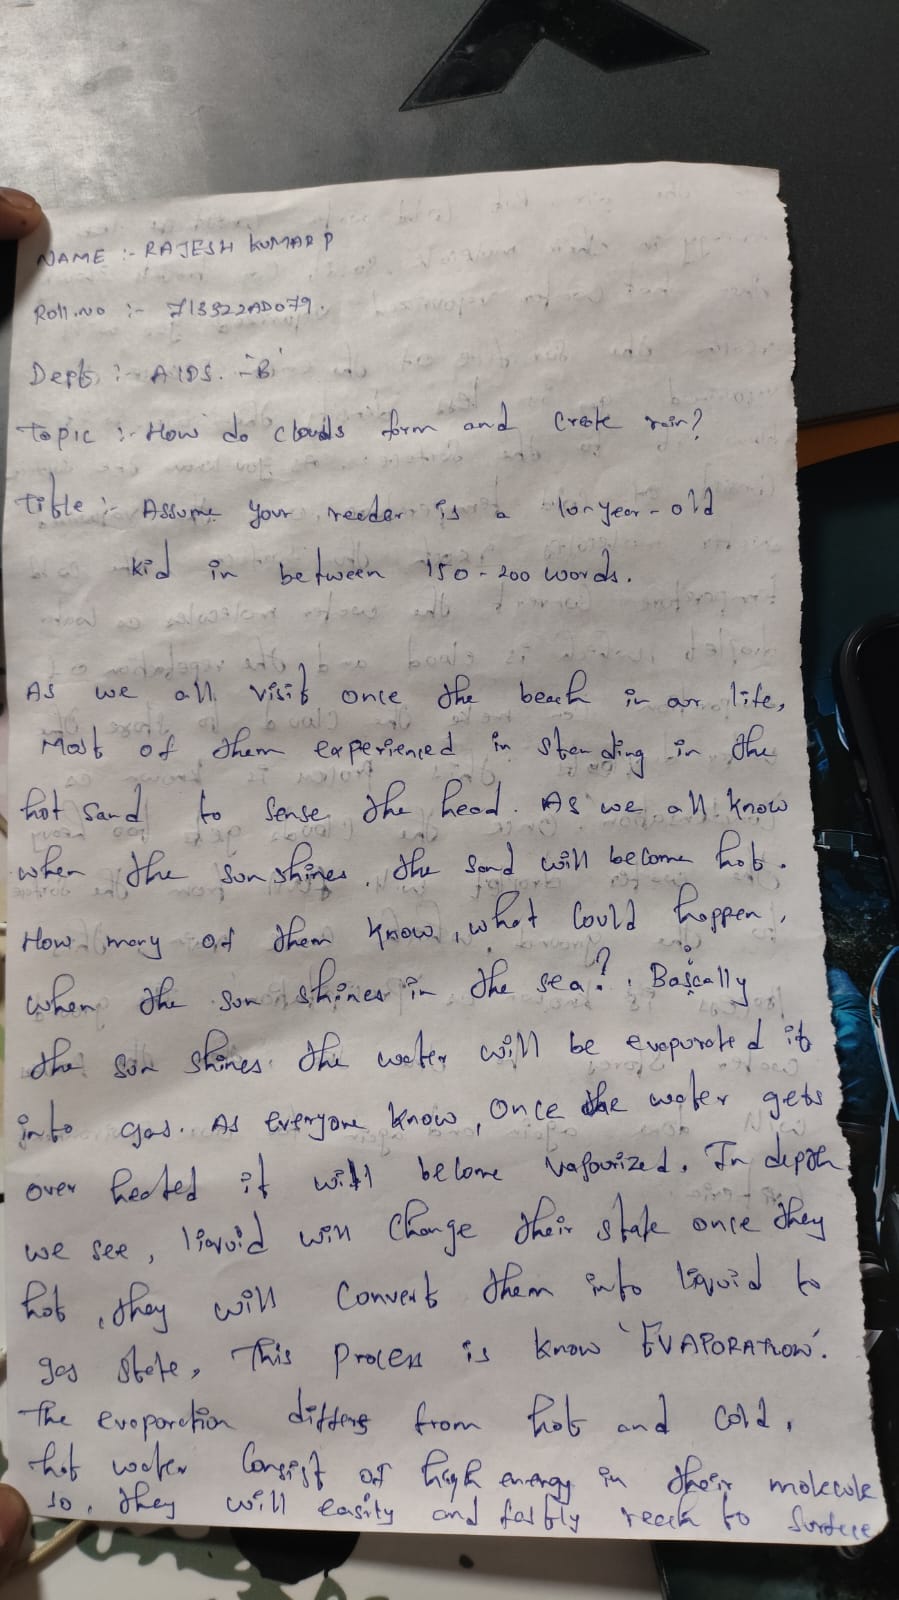 NAME :- RAJESH KUMAR P
Roll.no :- 713322AD079.
Dept :- AIDS. -'B'
Topic :- How do clouds form and create rain?
Title :- Assume your reader is a 10-year-old
kid in between 150-200 words.
As we all visit once the beach in our life,
Most of them experienced in standing in the
hot sand to sense the head. As we all know
when the sun shines, the sand will become hot.
How many of them know, what could happen,
when the sun shines in the sea?. Basically
the sun shines the water will be evaporated it
into gas. As everyone know, once the water gets
over heated it will become vapourized. In depth
we see, liquid will change their state once they
hot, they will convert them into liquid to
gas state. This process is know 'EVAPORATION'.
The evaporation differs from hot and cold,
hot water consist of high energy in their molecule
so, they will easity and fastly reach to surface